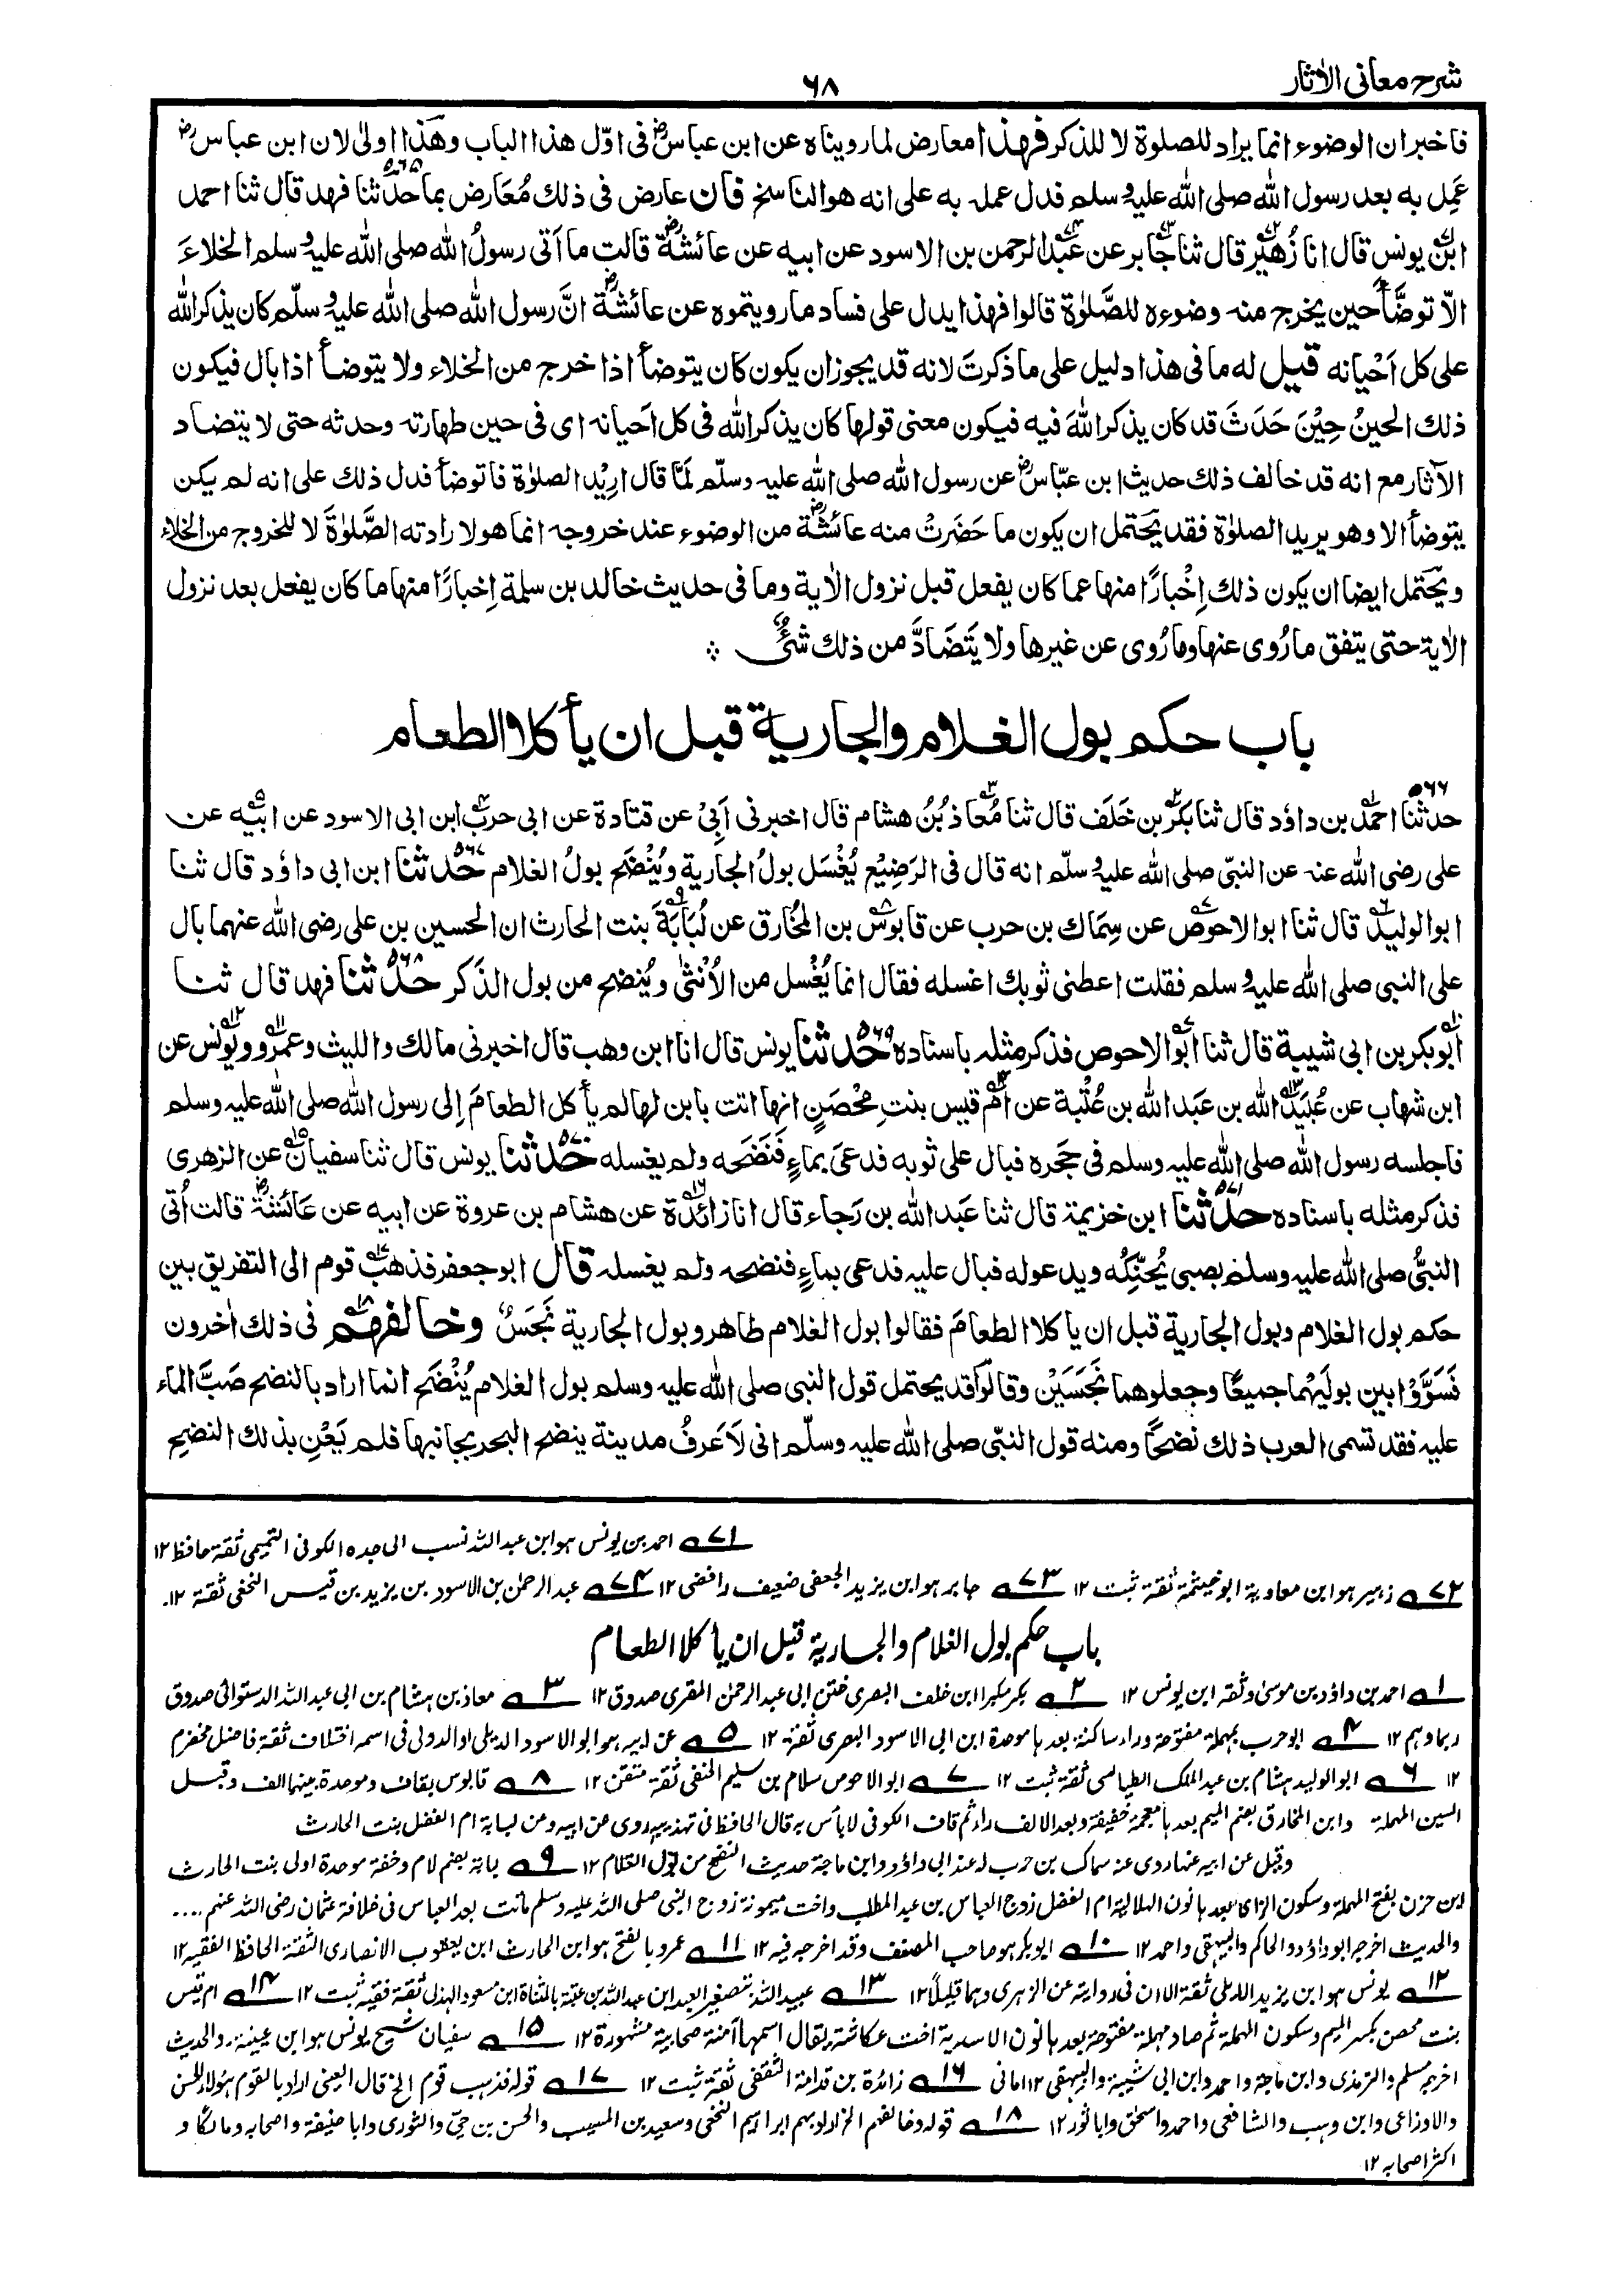 شرح معانی الاٰثار
۶۸
فاخبر ان الوضوء انما یراد للصلوة لا للذکر فهذا معارض لما رویناہ عن ابن عباسؓ فی اوّل هذا الباب وهٰذا اولیٰ لان ابن عباسؓ
عَمِل به بعد رسول الله صلی الله علیه وسلم فدل عمله به علی انه هو الناسخ فان عارض فی ذلك مُعَارض بما ۵۶۵ حدثنا فهد قال ثنا احمد
ابن یونس قال انا زُهَیْر قال ثنا جابر عن عَبْد الرحمن بن الاسود عن ابیه عن عائشةؓ قالت ما اَتی رسولُ الله صلی الله علیه وسلم الخلاءَ
الّا توضَّأَ حین یخرج منه وضوءہ للصَّلٰوة قالوا فهذا یدل علی فساد ما رویتموہ عن عائشةؓ انَّ رسول الله صلی الله علیه وسلّم کان یذکر الله
علی کل اَحْیانه قیل له ما فی هذا دلیل علی ما ذکرتَ لانه قد یجوز ان یکون کان یتوضأ اذا خرج من الخلاء ولا یتوضأ اذا بال فیکون
ذلك الحینُ حِیْنَ حَدَثَ قد کان یذکر اللهَ فیه فیکون معنی قولها کان یذکر الله فی کل اَحیانه ای فی حین طهارته وحدثه حتی لا یتضاد
الآثار مع انه قد خالف ذلك حدیث ابن عبّاسؓ عن رسول الله صلی الله علیه وسلّم لَمَّا قال اُرِیْد الصلوٰة فاتوضأ فدل ذلك علی انه لم یکن
یتوضأ الا وهو یرید الصلوٰة فقد یَحتمل ان یکون ما حَضَرتْ منه عائشةؓ من الوضوء عند خروجه انما هو لارادته الصَّلوٰةَ لا للخروج من الخلاء
ویَحتمل ایضا ان یکون ذلك اِخْبارًا منها عما کان یفعل قبل نزول الاٰیة وما فی حدیث خالد بن سلمة اِخبارًا منها ما کان یفعل بعد نزول
الاٰیة حتی یتفق ما رُوی عنها وما رُوی عن غیرها ولا یَتَضَادَّ من ذلك شیْءٌ
باب حکم بول الغلام والجاریة قبل ان یأکلا الطعام
۵۶۶ حدثنا احمد بن داؤد قال ثنا بکر بن خَلَف قال ثنا مُعاذ بُنُ هشام قال اخبرنی اَبِیْ عن قتادة عن ابی حرب ابن ابی الاسود عن ابیه عن
علی رضی الله عنه عن النبیّ صلی الله علیه وسلّم انه قال فی الرَضِیْع یُغْسَل بولُ الجاریة ویُنْضَح بولُ الغلام ۵۶۷ حدثنا ابن ابی داؤد قال ثنا
ابو الولید قال ثنا ابو الاحوص عن سِمَاك بن حرب عن قابوس بن المُخَارق عن لُبَابَةَ بنت الحارث ان الحسین بن علی رضی الله عنهما بال
علی النبی صلی الله علیه وسلم فقلت اعطنی ثوبك اغسله فقال انما یُغْسل من الاُنْثیٰ ویُنضح من بول الذَکر ۵۶۸ حدثنا فهد قال ثنا
ابو بکر بن ابی شیبة قال ثنا ابو الاحوص فذکر مثله باسنادہ ۵۶۹ حدثنا یونس قال انا ابن وهب قال اخبرنی مالك واللیث وعمرو ویونس عن
ابن شهاب عن عُبَید الله بن عَبد الله بن عُتْبة عن ام قیس بنتِ مِحْصَنٍ انها اتت بابن لها لم یأکل الطعامَ اِلی رسول الله صلی الله علیه وسلم
فاجلسه رسول الله صلی الله علیه وسلم فی حَجَرہ فبال علی ثوبه فدعیَ بماءٍ فَنَضَحَه ولم یغسله ۵۷۰ حدثنا یونس قال ثنا سفیان عن الزهری
فذکر مثله باسنادہ ۵۷۱ حدثنا ابن خزیمة قال ثنا عَبد الله بن رَجاء قال انا زائدة عن هشام بن عروة عن ابیه عن عَائشةؓ قالت اُتی
النبیُّ صلی الله علیه وسلم بصبی یُحَنِّکُه ویدعو له فبال علیه فدعی بماءٍ فنضحه ولم یغسله قال ابو جعفر فذهب قوم الی التفریق بین
حکم بول الغلام وبول الجاریة قبل ان یاکلا الطعامَ فقالوا بول الغلام طاهر وبول الجاریة نَجَسٌ وخالفهم فی ذلك اٰخرون
فَسَوَّوْا بین بولَیْهما جمیعًا وجعلوهما نَجَسَیْنِ وقالوا قد یحتمل قول النبی صلی الله علیه وسلم بول الغلام یُنْضَح انما اراد بالنضح صَبَّ الماء
علیه فقد تسمی العرب ذلك نضحًا ومنه قول النبیّ صلی الله علیه وسلّم انی لَاَعرفُ مدینة ینضح البحر بجانبها فلم یَعْنِ بذلك النضح
۷۱ احمد بن یونس هو ابن عبد الله نسب الی جدہ الکوفی التمیمی ثقة حافظ ۱۲
۷۲ زهیر هو ابن معاویة ابو خیثمة ثقة ثبت ۱۲ ۷۳ جابر هو ابن یزید الجعفی ضعیف رافضی ۱۲ ۷۴ عبد الرحمٰن بن الاسود بن یزید بن قیس النخعی ثقة ۱۲.
باب حکم بول الغلام والجاریة قبل ان یأکلا الطعام
۱ احمد بن داؤد بن موسیٰ وثقه ابن یونس ۱۲ ۲ بکر مکبرا ابن خلف البصری ختن ابی عبد الرحمٰن المقری صدوق ۱۲ ۳ معاذ بن هشام بن ابی عبد الله الدستوائی صدوق
ربما وهم ۱۲ ۴ ابو حرب بمهملة مفتوحة وراء ساکنة بعدها موحدة ابن ابی الاسود البصری ثقة ۱۲ ۵ عن ابیه هو ابو الاسود الدیلی او الدولی فی اسمه اختلاف ثقة فاضل مخضرم
۱۲ ۶ ابو الولید هشام بن عبد الملك الطیالسی ثقة ثبت ۱۲ ۷ ابو الاحوص سلام بن سلیم الحنفی ثقة متقن ۱۲ ۸ قابوس بقاف وموحدة بینهما الف وقبل
السین المهملة وابن المخارق بضم المیم بعدها معجمة خفیفة وبعد الالف راء ثم قاف الکوفی لا باس به قال الحافظ فی تهذیبه روی عن ابیه وعن لبابة ام الفضل بنت الحارث
وقیل عن ابیه عنها روی عنه سماك بن حرب له عند ابی داؤد وابن ماجة حدیث النضح من بول الغلام ۱۲ ۹ لبابة بضم لام وخفة موحدة اولی بنت الحارث
ابن حزن بفتح المهملة وسکون الزای بعدها نون الهلالیة ام الفضل زوج العباس بن عبد المطلب واخت میمونة زوج النبی صلی الله علیه وسلم ماتت بعد العباس فی خلافة عثمان رضی الله عنهم ....
والحدیث اخرجه ابو داؤد والحاکم والبیهقی واحمد ۱۲ ۱۰ ابو بکر هو صاحب المصنف وقد اخرجه فیه ۱۲ ۱۱ عمرو بالفتح هو ابن الحارث ابن یعقوب الانصاری الثقة الحافظ الفقیه ۱۲
۱۲ یونس هو ابن یزید الایلی ثقة الا ان فی روایته عن الزهری وهما قلیلًا ۱۲ ۱۳ عبید الله بتصغیر العبد ابن عبد الله بن عتبة بالمثناة ابن مسعود الهذلی ثقة فقیه ثبت ۱۲ ۱۴ ام قیس
بنت محصن بکسر المیم وسکون المهملة ثم صاد مهملة مفتوحة بعدها نون الاسدیة اخت عکاشة یقال اسمها آمنة صحابیة مشهورة ۱۲ ۱۵ سفیان شیخ یونس هو ابن عیینة. والحدیث
اخرجه مسلم والترمذی وابن ماجة واحمد وابن ابی شیبة والبیهقی ۱۲ امانی ۱۶ زائدة بن قدامة الثقفی ثقة ثبت ۱۲ ۱۷ قوله فذهب قوم الخ قال العینی اراد بالقوم هؤلاء الحسن
والاوزاعی وابن وهب والشافعی واحمد واسحٰق وابا ثور ۱۲ ۱۸ قوله وخالفهم الخ اراد بهم ابراهیم النخعی وسعید بن المسیب والحسن بن حیّ والثوری وابا حنیفة واصحابه ومالکًا و
اکثر اصحابه ۱۲